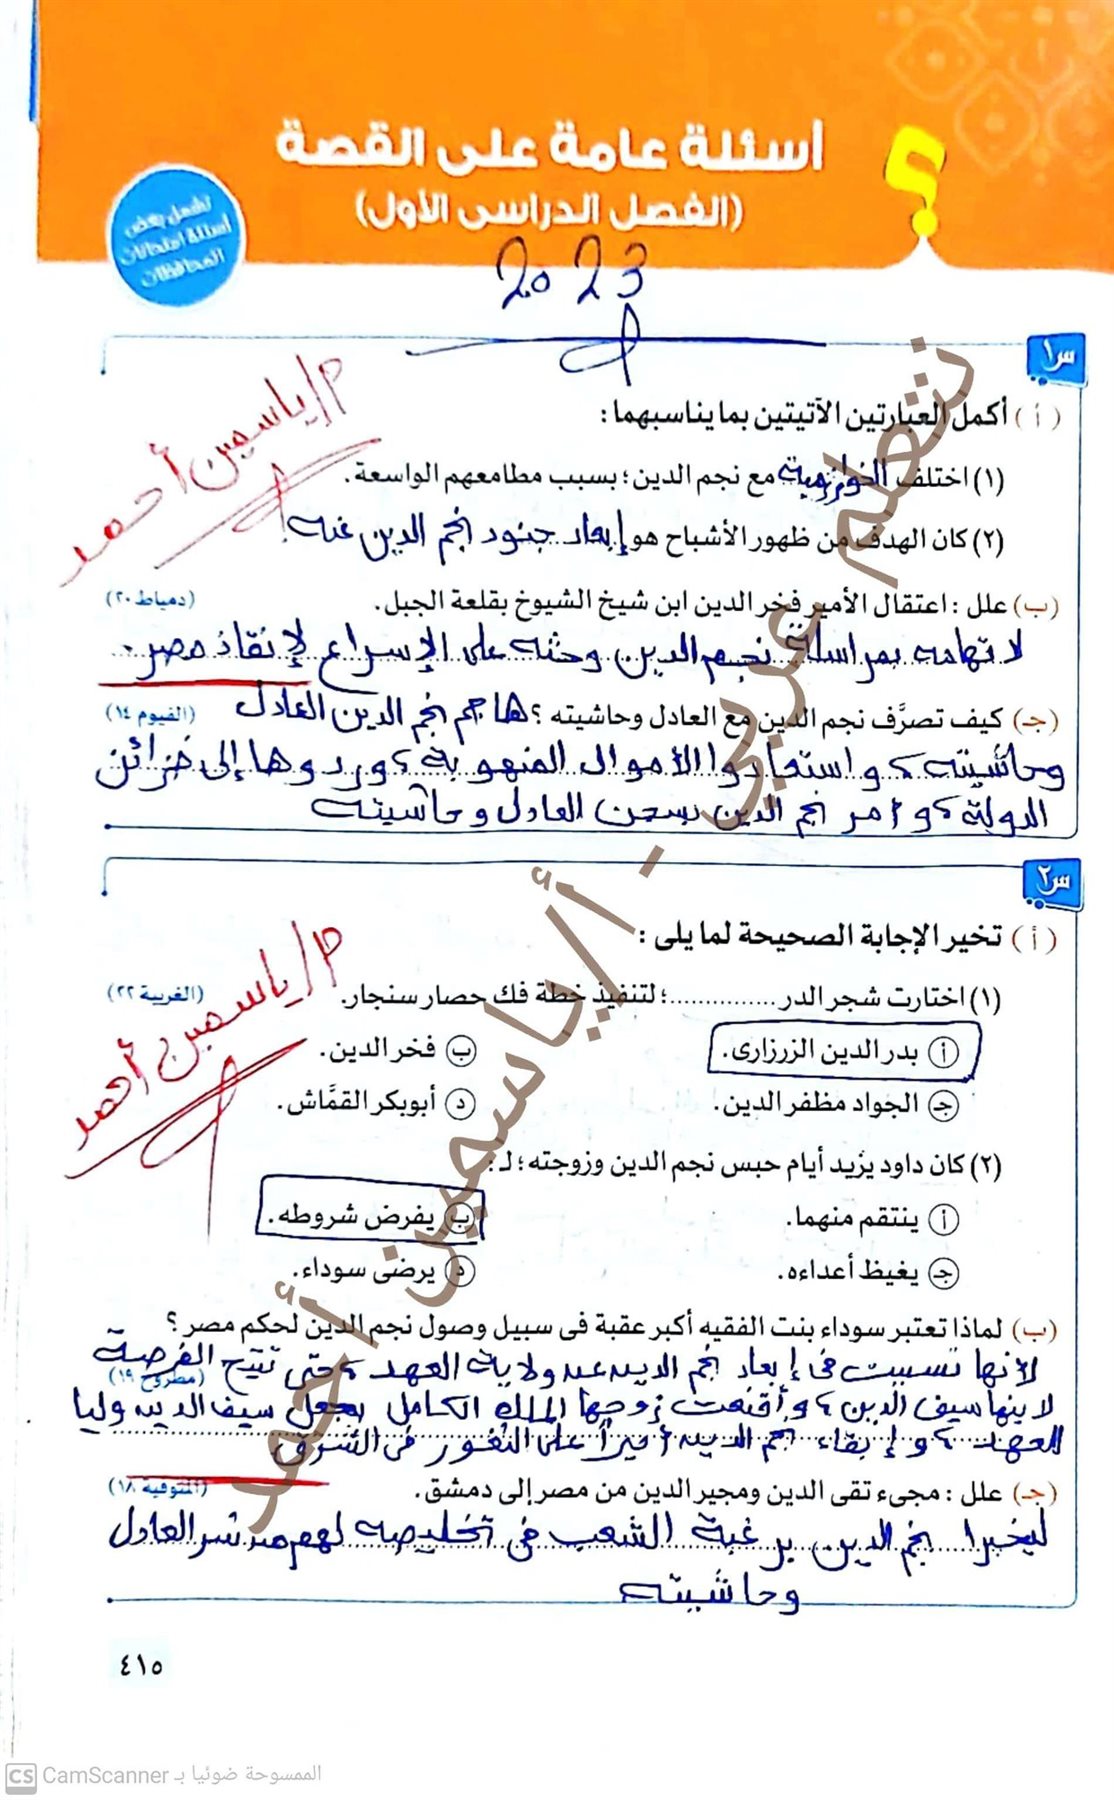 أسئلة عامة على القصة
(الفصل الدراسى الأول)
تشمل بعض
أسئلة امتحانات
المحافظات
2023
س١
م/ ياسمين أحمد
(أ) أكمل العبارتين الآتيتين بما يناسبهما:
(١) اختلف الخوارزمية مع نجم الدين؛ بسبب مطامعهم الواسعة.
(٢) كان الهدف من ظهور الأشباح هو إبعاد جنود نجم الدين عنه.
(ب) علل: اعتقال الأمير فخر الدين ابن شيخ الشيوخ بقلعة الجبل. (دمياط ٢٠)
لاتهامه بمراسلة نجم الدين وحثه على الإسراع لإنقاذ مصر.
(جـ) كيف تصرَّف نجم الدين مع العادل وحاشيته؟ هاجم نجم الدين العادل (الفيوم ١٤)
وحاشيته، واستعادوا الأموال المنهوبة، وردوها إلى خزائن
الدولة، وأمر نجم الدين بسجن العادل وحاشيته
س٢
م/ ياسمين أحمد
(أ) تخير الإجابة الصحيحة لما يلى:
(١) اختارت شجر الدر ...............؛ لتنفيذ خطة فك حصار سنجار. (الغربية ٢٢)
أ بدر الدين الزرزارى. ب فخر الدين.
جـ الجواد مظفر الدين. د أبو بكر القمَّاش.
(٢) كان داود يزيد أيام حبس نجم الدين وزوجته؛ لـ:
أ ينتقم منهما. ب يفرض شروطه.
جـ يغيظ أعداءه. د يرضى سوداء.
(ب) لماذا تعتبر سوداء بنت الفقيه أكبر عقبة فى سبيل وصول نجم الدين لحكم مصر؟
لأنها تسببت فى إبعاد نجم الدين عن ولاية العهد، حتى تتيح الفرصة (مطروح ١٩)
لابنها سيف الدين، وأقنعت زوجها الملك الكامل بجعل سيف الدين وليا
للعهد، وإبقاء نجم الدين أميراً على الثغور فى الشرق
(جـ) علل: مجىء تقى الدين ومجير الدين من مصر إلى دمشق. (المنوفية ١٨)
ليخبرا نجم الدين برغبة الشعب فى تخليصه لهم من شر العادل
وحاشيته
٤١٥
نتعلم عربي - أ/ياسمين أحمد
CS CamScanner الممسوحة ضوئيا بـ